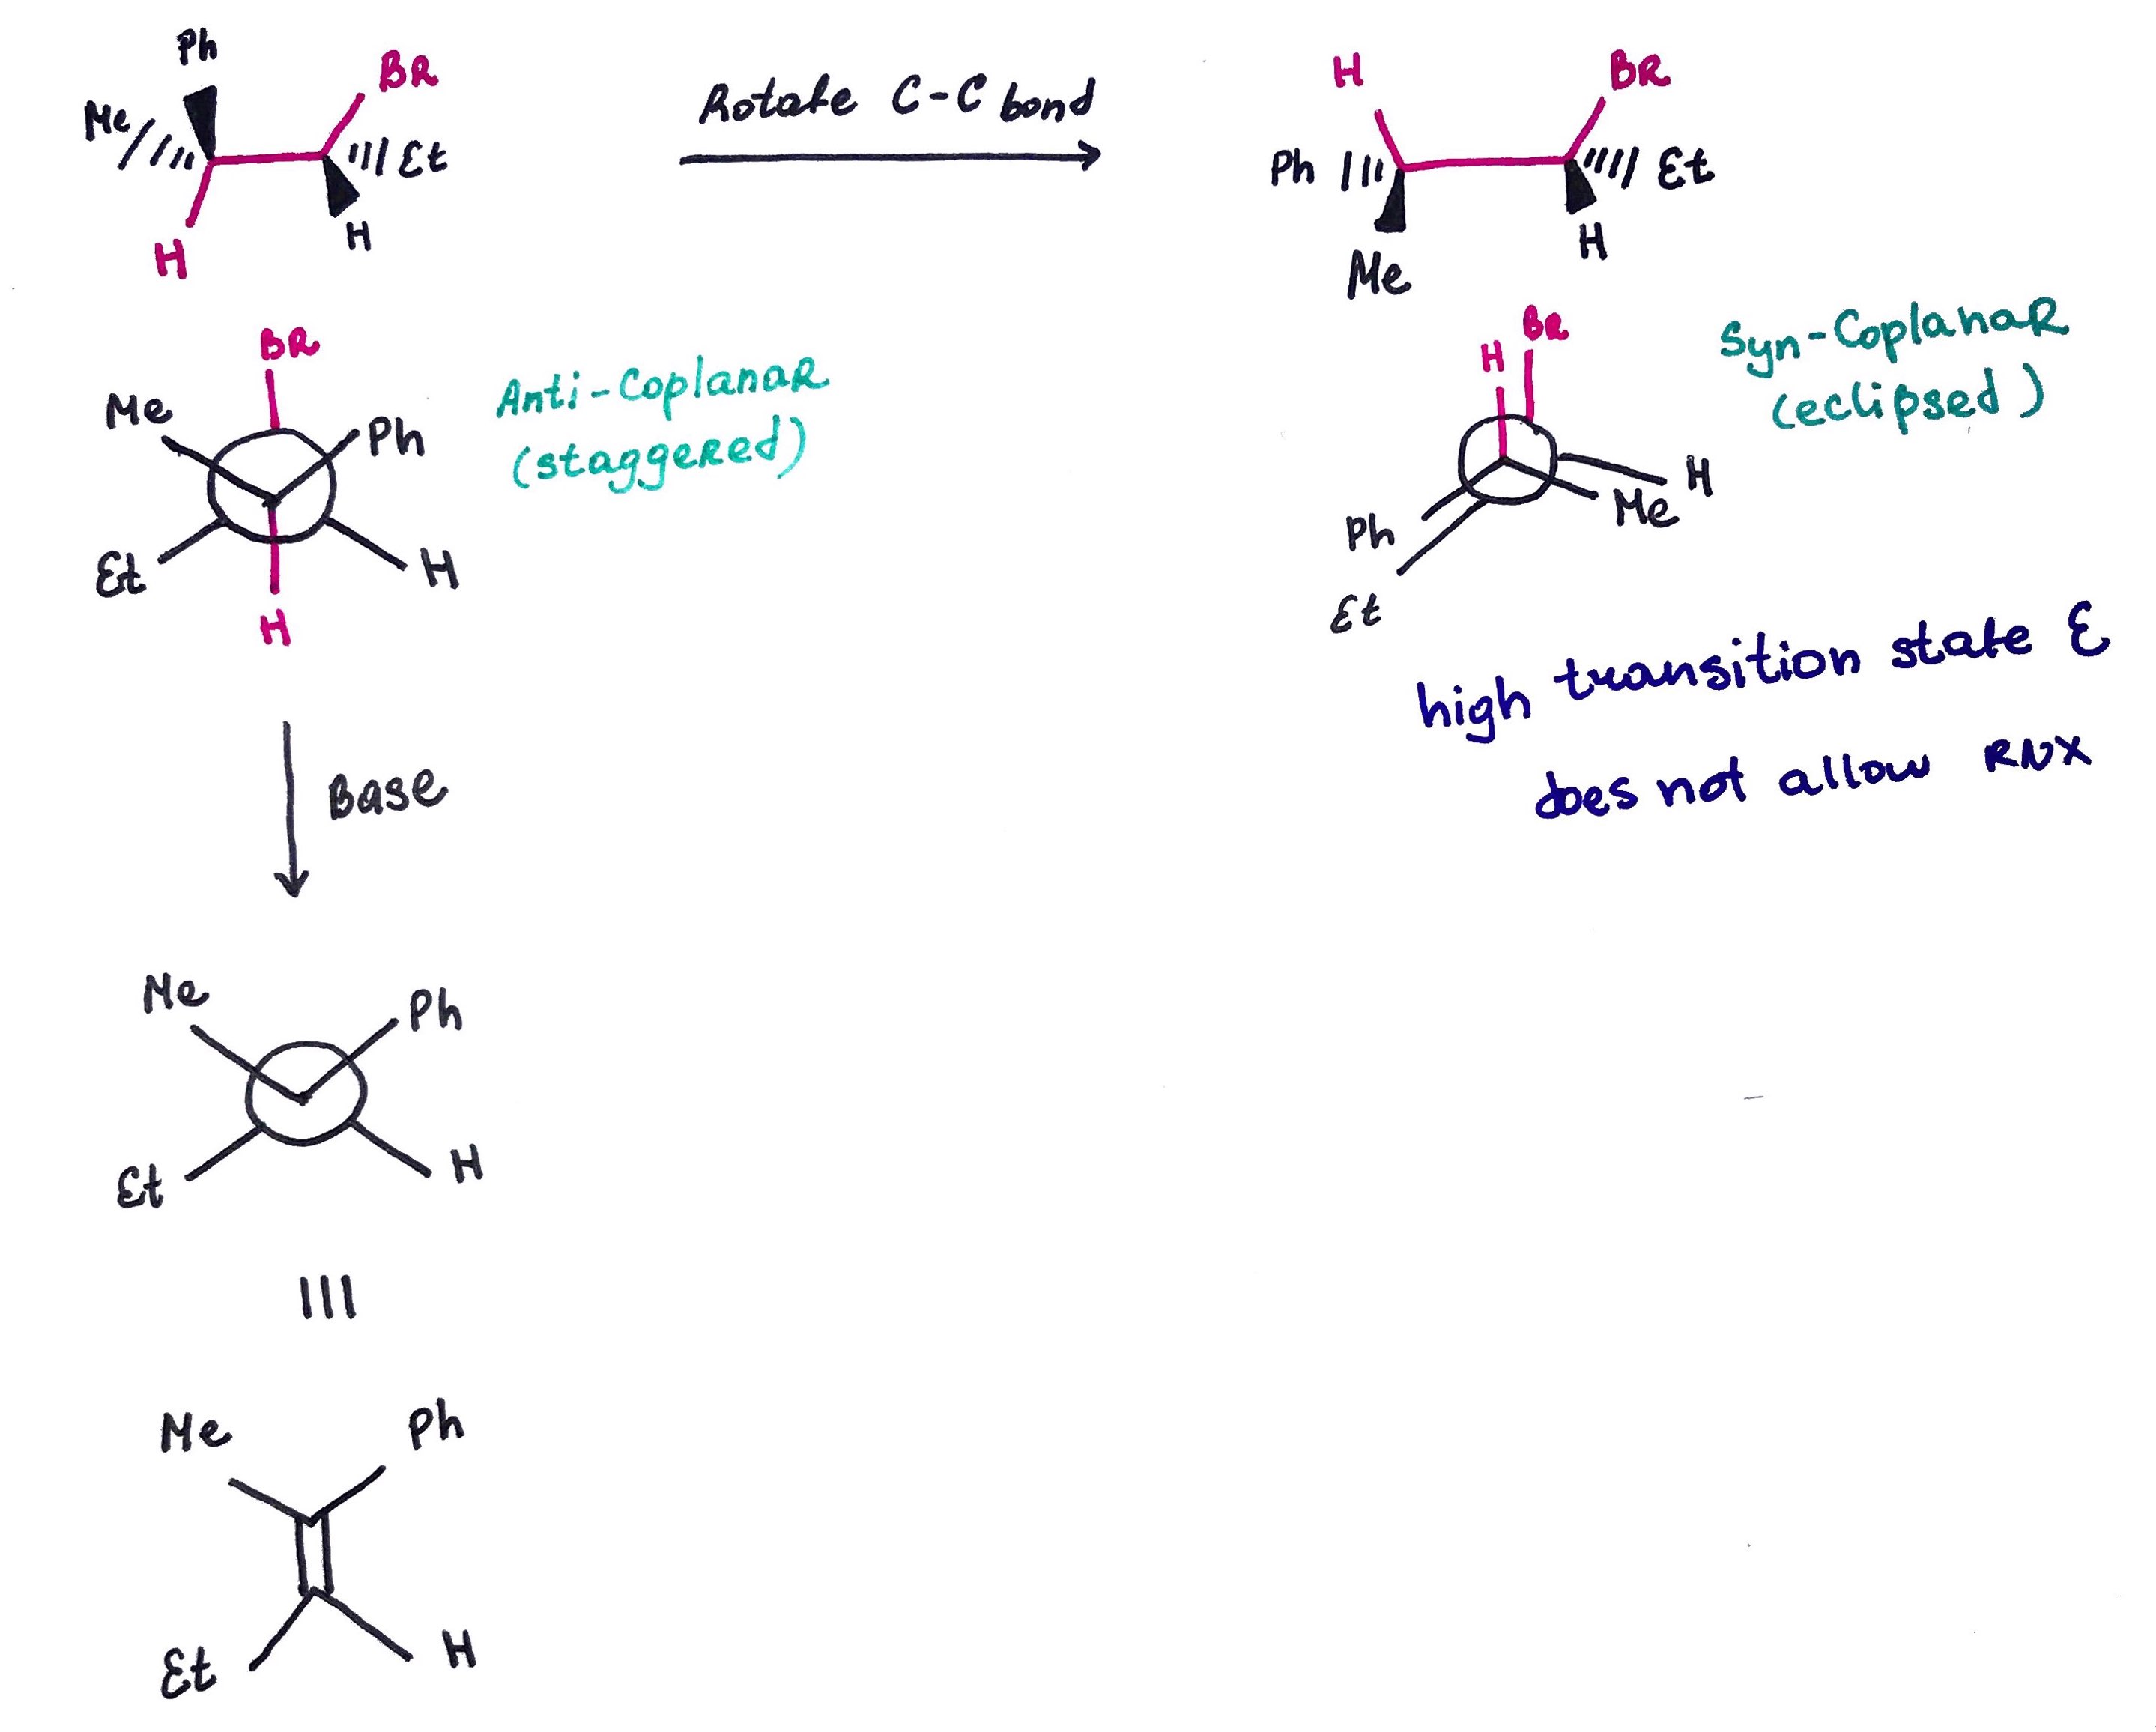 Ph
Me
BR
Et
H
H
Rotate C-C bond
H
BR
Ph
Et
Me
H
BR
Me
Ph
Et
H
H
Anti-Coplanar
(staggered)
BR
H
H
Me
Ph
Et
Syn-Coplanar
(eclipsed)
high transition state E
does not allow RNX
Base
Me
Ph
Et
H
Me
Ph
Et
H